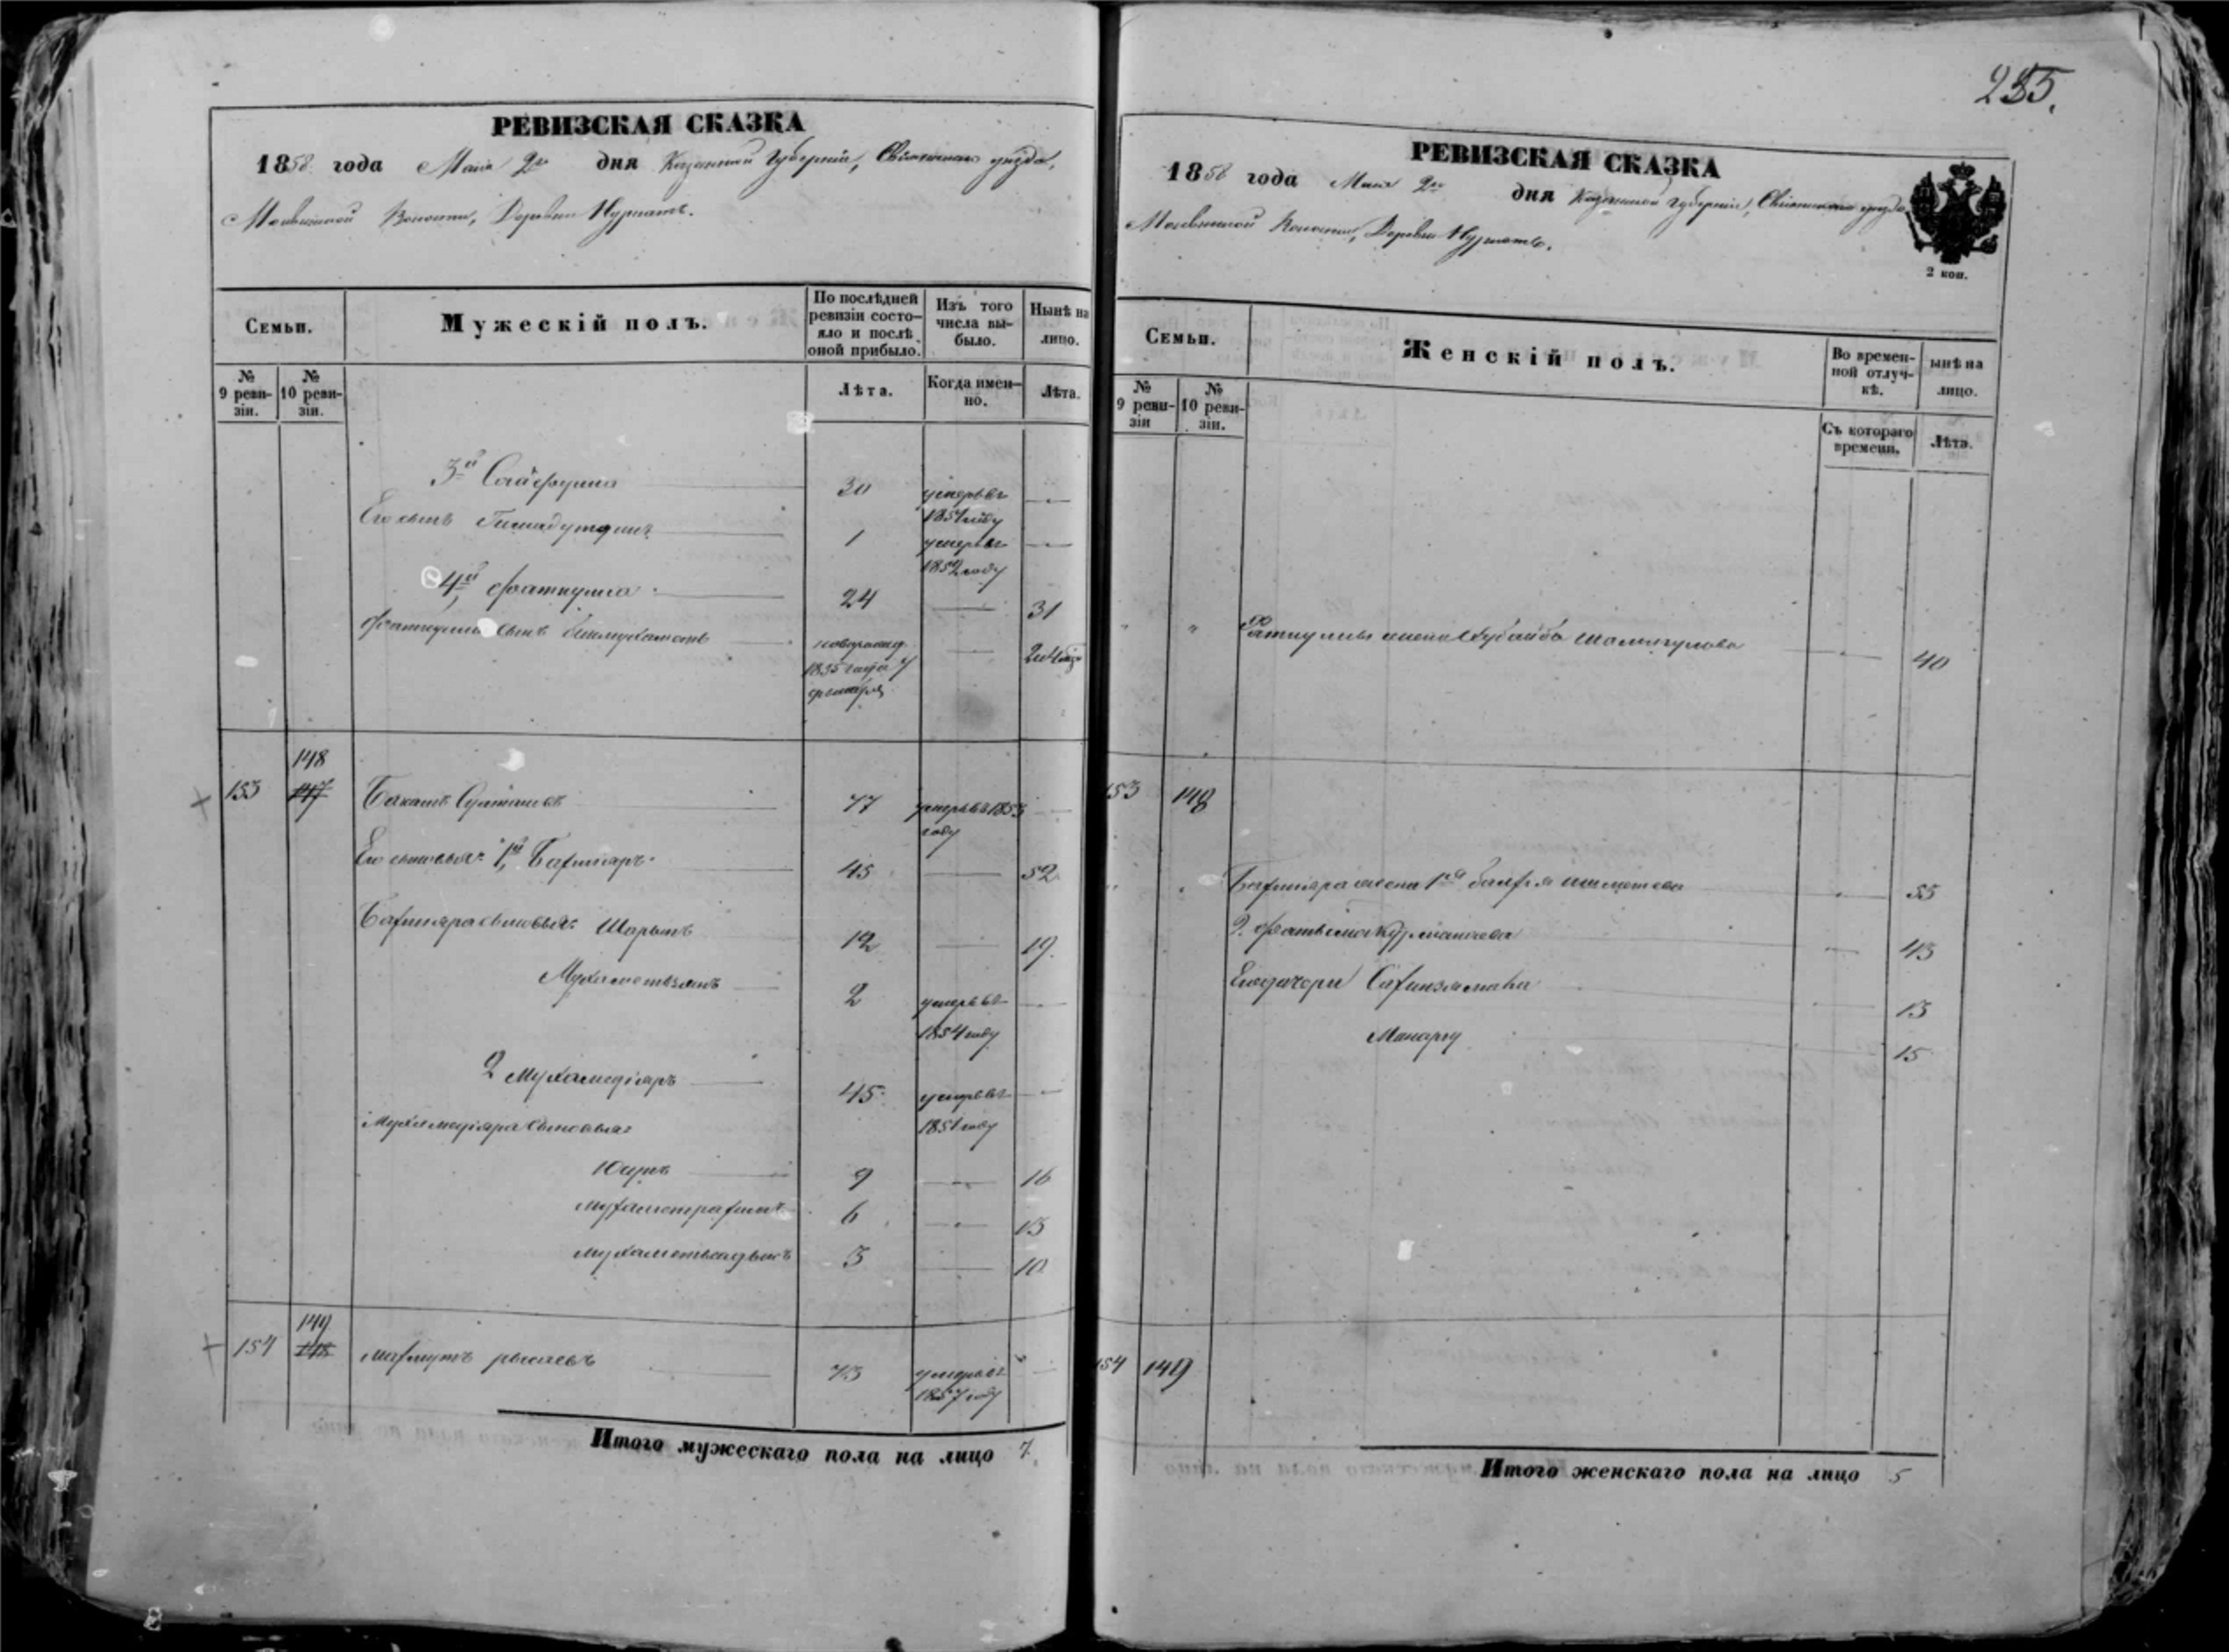 235.
РЕВИЗСКАЯ СКАЗКА
1858 года Мая 2го дня Казанской Губерніи, Свіяжскаго уѣзда,
Волости, Деревни Нурлатъ.
Семьи.
Мужескій полъ.
По послѣдней ревизіи состояло и послѣ оной прибыло.
Изъ того числа выбыло.
Нынѣ на лицо.
№ 9 ревизіи.
№ 10 ревизіи.
Лѣта.
Когда именно.
Лѣта.
3й Сайфулла 30 умеръ въ 1851 году —
Его сынъ 1 умеръ въ 1852 году —
4й Фаткулла 24 — 31
Фаткуллы сынъ — 2
148
153 147 Бакашъ 77 умеръ въ 1853 году —
Его сыновья: 1й Бахтіаръ 45 — 52
Бахтіяра сыновья: Шарыпъ 12 — 19
Мухаметзянъ 2 умеръ въ 1854 году —
2 Мухамедіаръ 45 умеръ въ 1851 году —
Мухамедіяра сыновья:
9 — 16
Мухаметрахимъ 6 — 13
Мухаметсадыкъ 3 — 10
149
154 148 Махмутъ 73 умеръ въ 1857 году —
Итого мужескаго пола на лицо 7.
РЕВИЗСКАЯ СКАЗКА
1858 года Мая 2го дня Казанской Губерніи, Свіяжскаго уѣзда,
Волости, Деревни Нурлатъ.
2 коп.
Семьи.
Женскій полъ.
Во временной отлучкѣ.
ынѣ на лицо.
№ 9 ревизіи
№ 10 ревизіи.
Съ котораго времени.
Лѣта.
" " Фаткуллы жена Хубайба — 40
153 148
" " Бахтіяра жена 1я — 55
2. — 43
Ея дочери — 13
— 15
154 149
Итого женскаго пола на лицо 5